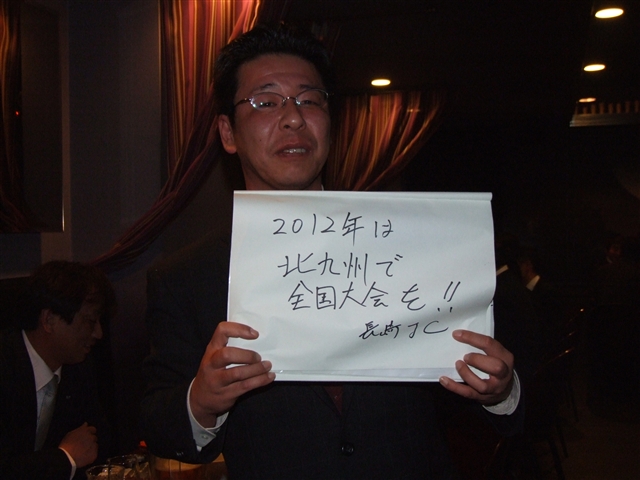 2012年は
北九州で
全国大会を!!
長崎JC